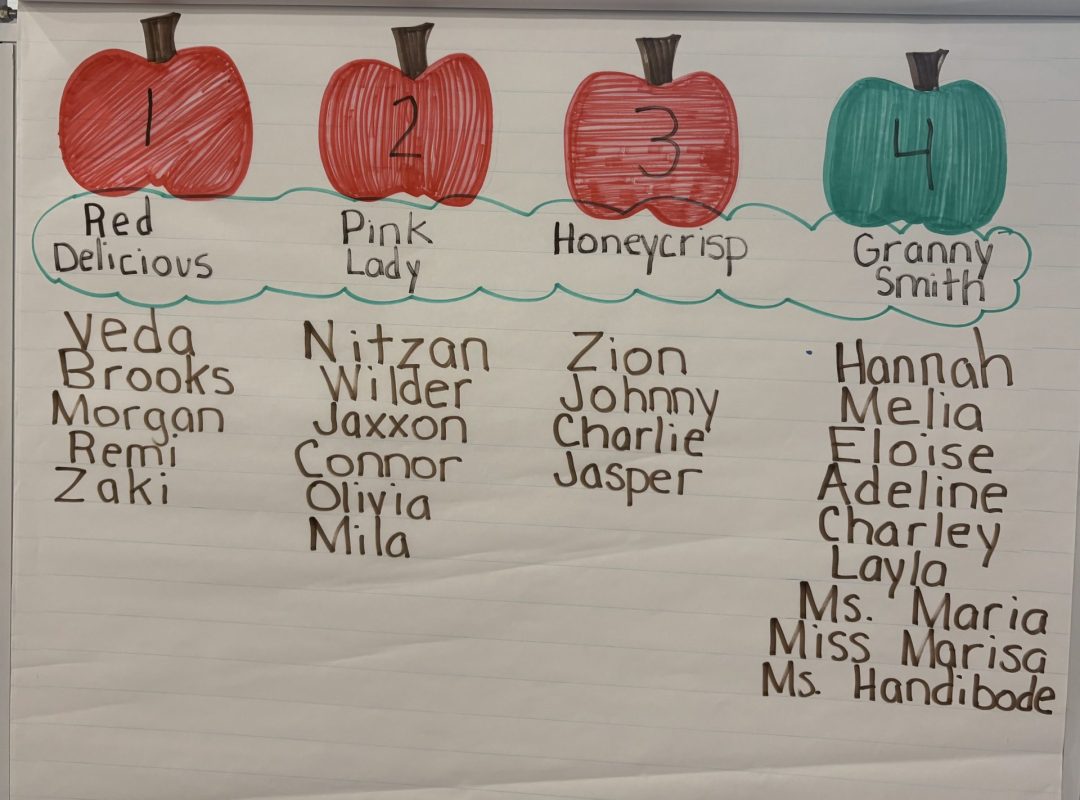 1
2
3
4
Red
Delicious
Pink
Lady
Honeycrisp
Granny
Smith
Veda
Brooks
Morgan
Remi
Zaki
Nitzan
Wilder
Jaxxon
Connor
Olivia
Mila
Zion
Johnny
Charlie
Jasper
Hannah
Melia
Eloise
Adeline
Charley
Layla
Ms. Maria
Miss Marisa
Ms. Handibode